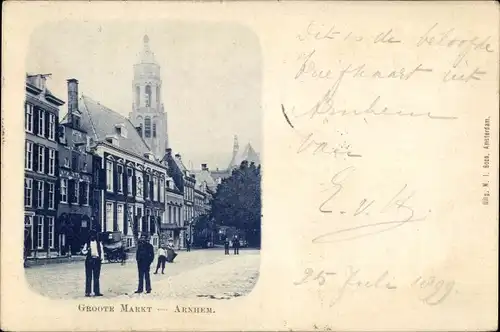 Dit is de beloofde
briefkaart uit
Arnhem
van
E. v. H.
25 Juli 1899.
GROOTE MARKT — ARNHEM.
Uitg. N. J. Boon, Amsterdam.